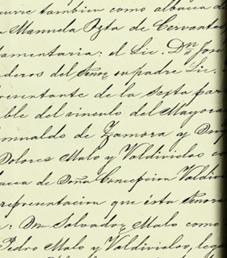 curre tambien como albacea de
a Manuela Pzta de Cervantes
damentaria: el Lic. Dn. Jose
deros del Señor su padre Lic.
resentante de la Sexta par
ble del vinculo del Mayora
omualdo de Zamora y
Dolores Malo y Valdivielso co
bacea de Doña Concepcion Valdivi
representacion que ésta Señora
r: Dn Salvador Malo como
Pedro Malo y Valdivielso, lega